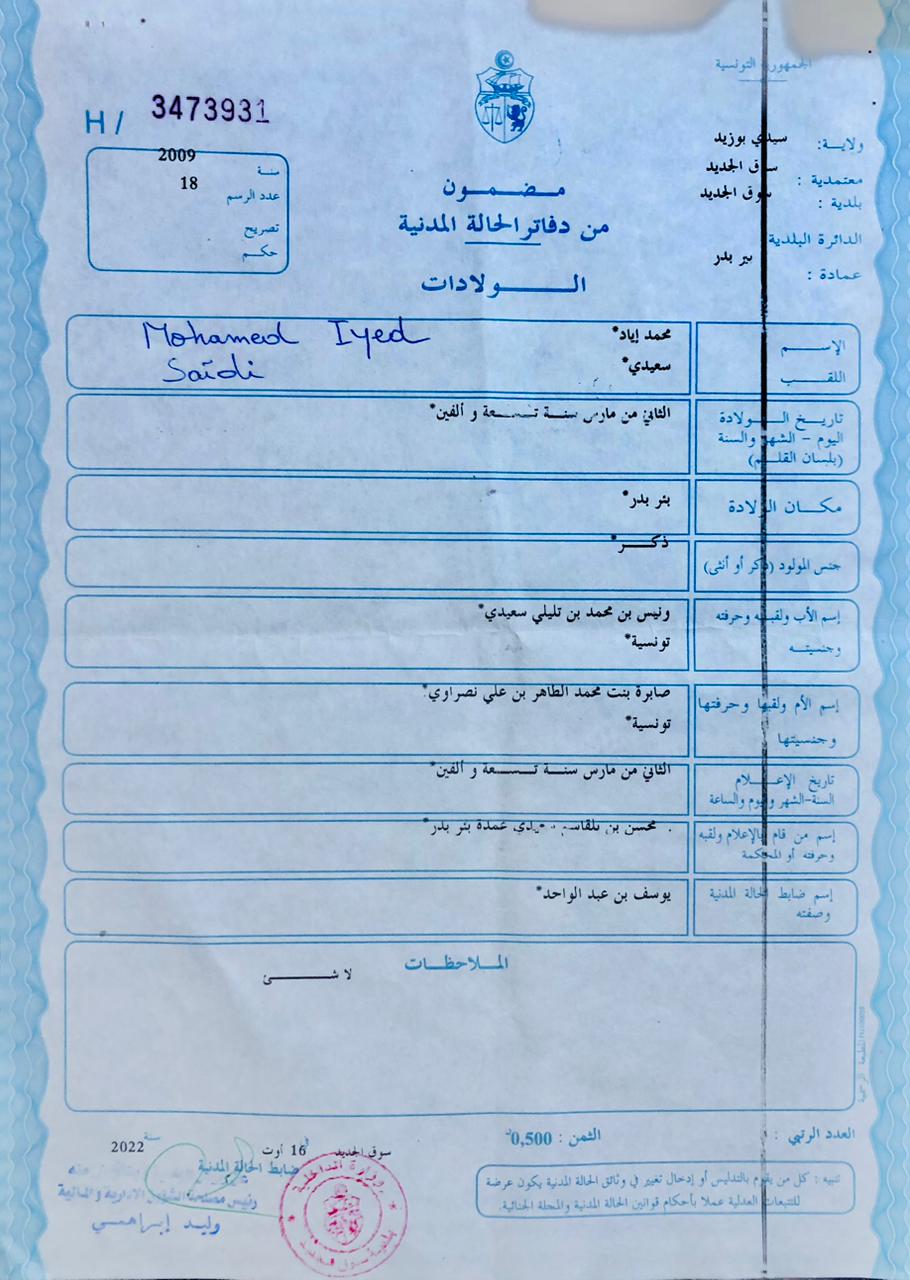 الجمهورية التونسية
H/ 3473931
ولاية: سيدي بوزيد
معتمدية: سوق الجديد
بلدية: سوق الجديد
الدائرة البلدية
عمادة: بير بدر
سنة 2009
عدد الرسم 18
تصريح
حكم
مضمون
من دفاتر الحالة المدنية
الولادات
الإسم محمد إياد* Mohamed Iyed
اللقب سعيدي* Saïdi
تاريخ الولادة الثاني من مارس سنة تسعة و ألفين*
اليوم - الشهر والسنة
(بلسان القلم)
مكان الولادة بئر بدر*
جنس المولود (ذكر أو أنثى) ذكر*
إسم الأب ولقبه وحرفته ونيس بن محمد بن تليلي سعيدي*
وجنسيته تونسية*
إسم الأم ولقبها وحرفتها صابرة بنت محمد الطاهر بن علي نصراوي*
وجنسيتها تونسية*
تاريخ الإعلام الثاني من مارس سنة تسعة و ألفين*
السنة-الشهر واليوم والساعة
إسم من قام بالإعلام ولقبه محسن بن بلقاسم عمدة بئر بدر*
وحرفته أو المحكمة
إسم ضابط الحالة المدنية يوسف بن عبد الواحد*
وصفته
الملاحظات
لا شئ
المطبعة الرسمية
العدد الرتبي : الثمن : 0,500د
سوق الجديد 16 أوت سنة 2022
ضابط الحالة المدنية
رئيس مصلحة الشؤون الادارية و المالية
وليد إبراهمي
وزارة الداخلية
بلدية سوق الجديد
تنبيه : كل من يقوم بالتدليس أو إدخال تغيير في وثائق الحالة المدنية يكون عرضة
للتتبعات العدلية عملا بأحكام قوانين الحالة المدنية والمجلة الجنائية.